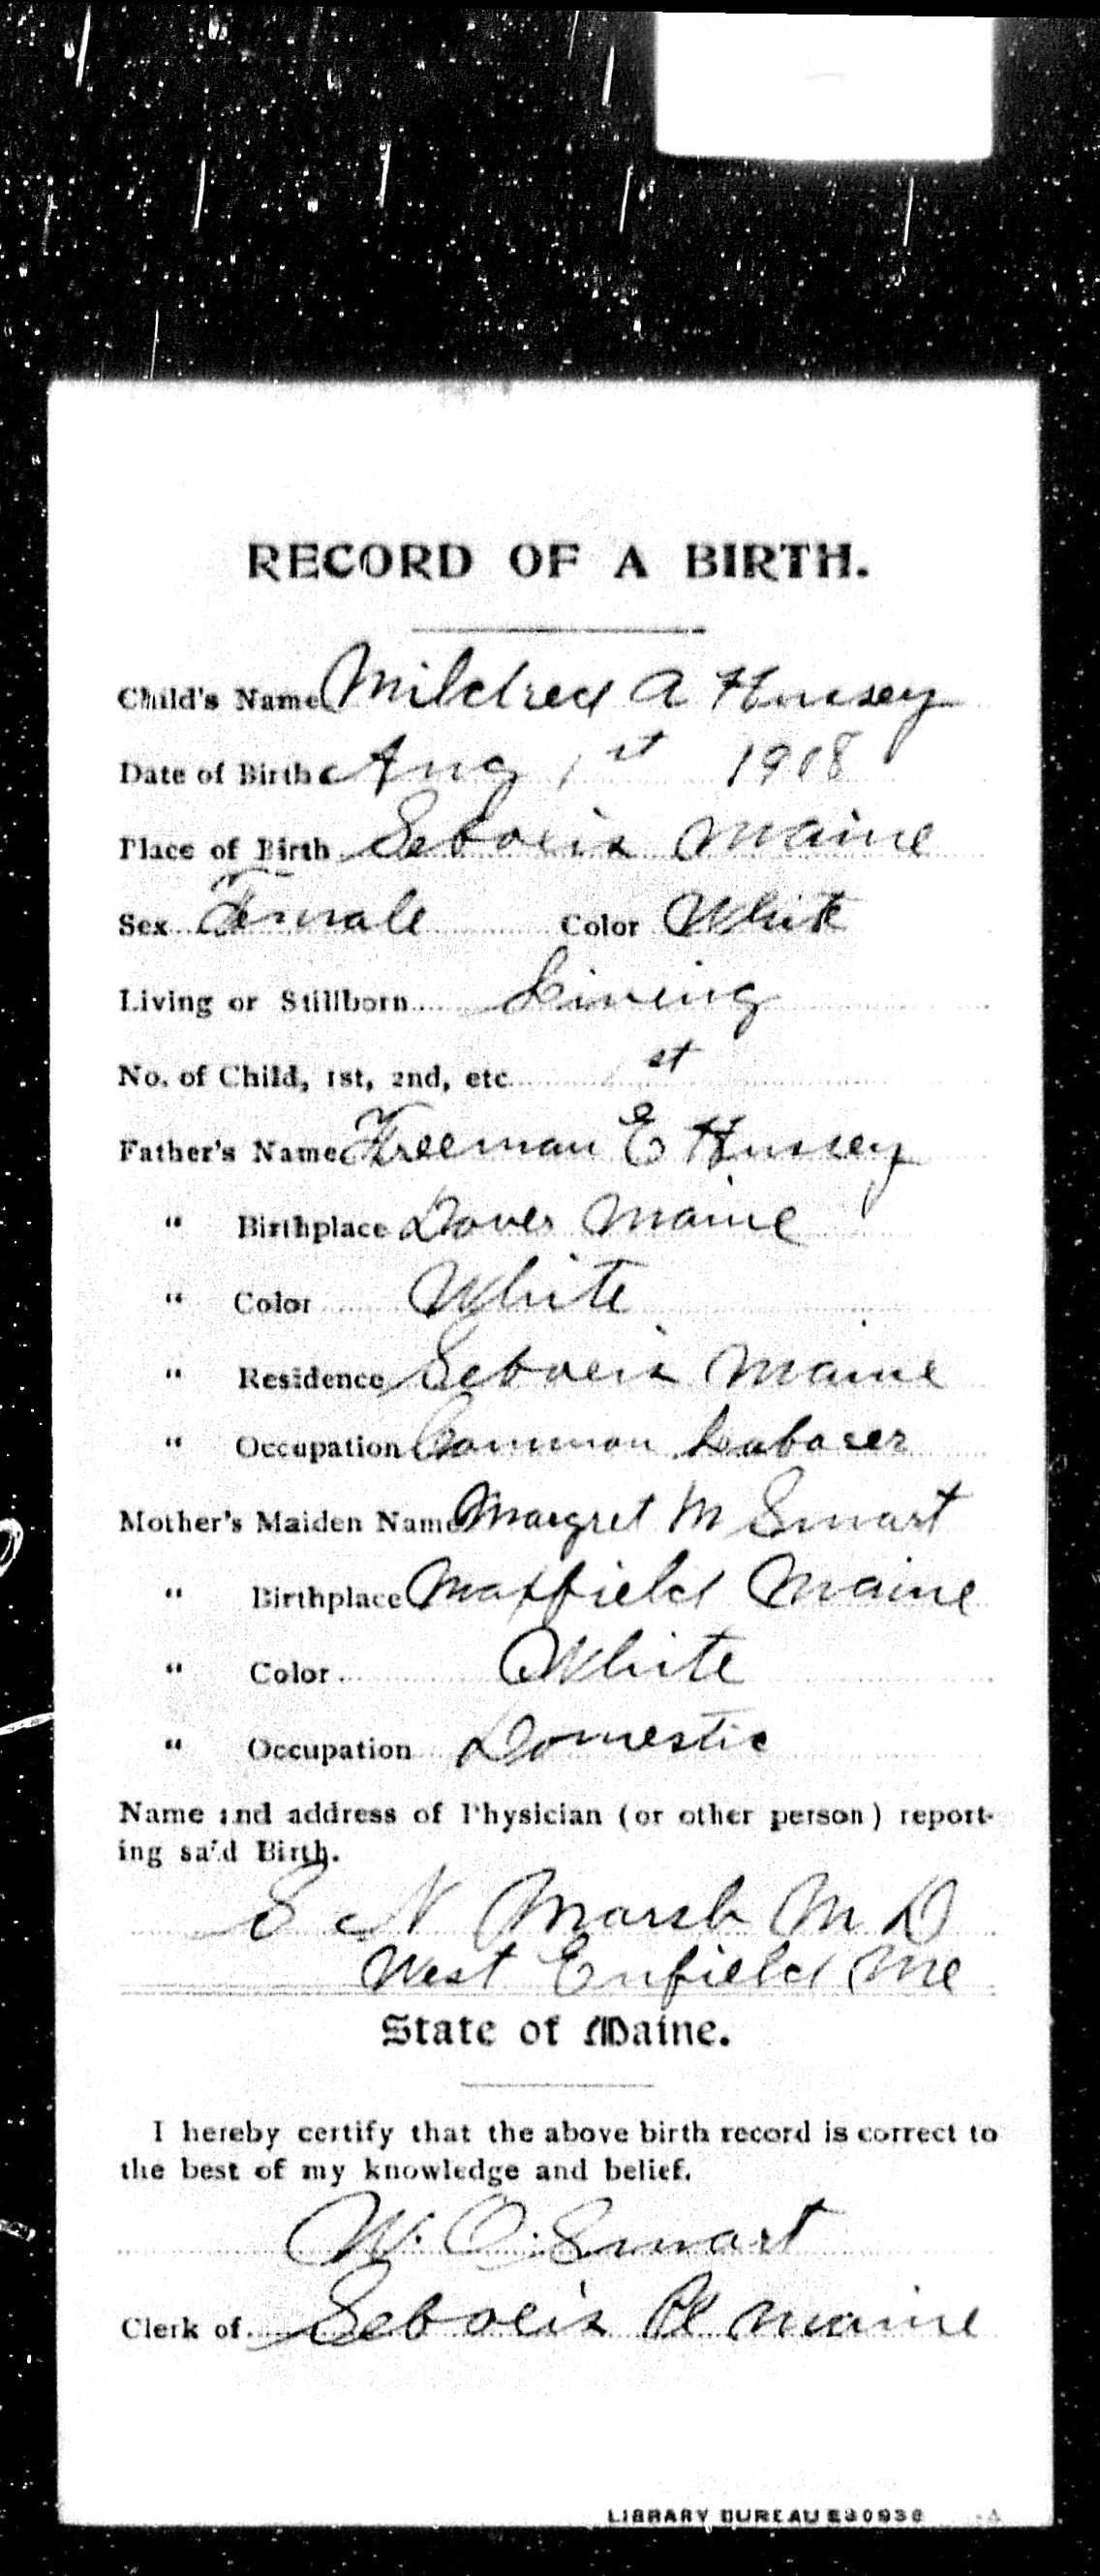 RECORD OF A BIRTH.
Child's Name Mildred A Hussey
Date of Birth Aug 1st 1918
Place of Birth Seboeis Maine
Sex Female Color White
Living or Stillborn Living
No. of Child, 1st, 2nd, etc. 1st
Father's Name Freeman E Hussey
" Birthplace Dover Maine
" Color White
" Residence Seboeis Maine
" Occupation Common Laborer
Mother's Maiden Name Margret M Smart
" Birthplace Maxfield Maine
" Color White
" Occupation Domestic
Name and address of Physician (or other person) report-
ing said Birth.
S N Marsh M D
West Enfield Me
State of Maine.
I hereby certify that the above birth record is correct to
the best of my knowledge and belief.
W. O. Smart
Clerk of Seboeis Pl Maine
LIBRARY BUREAU E30936